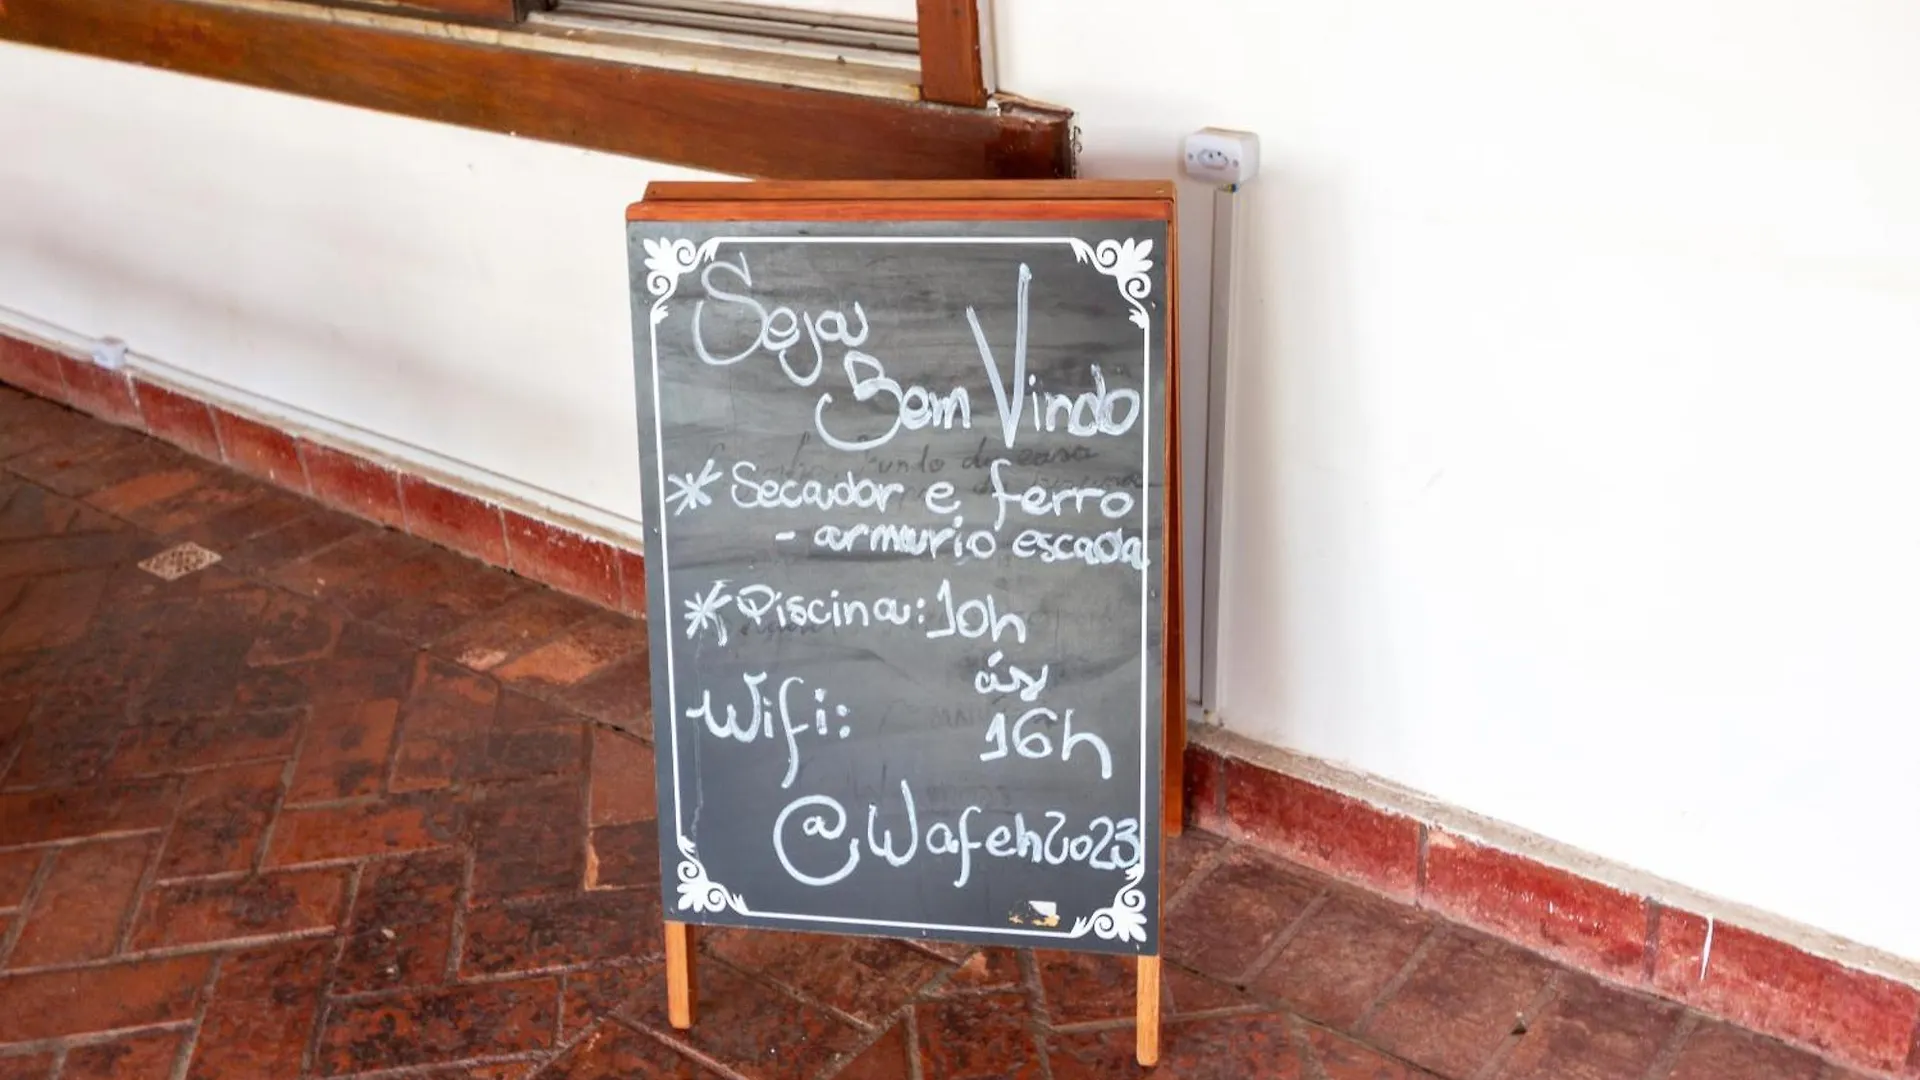 Seja
Bem Vindo
* Secador e ferro
- armario escada
* Piscina: 10h
ás
16h
Wifi:
@Wafeh2023